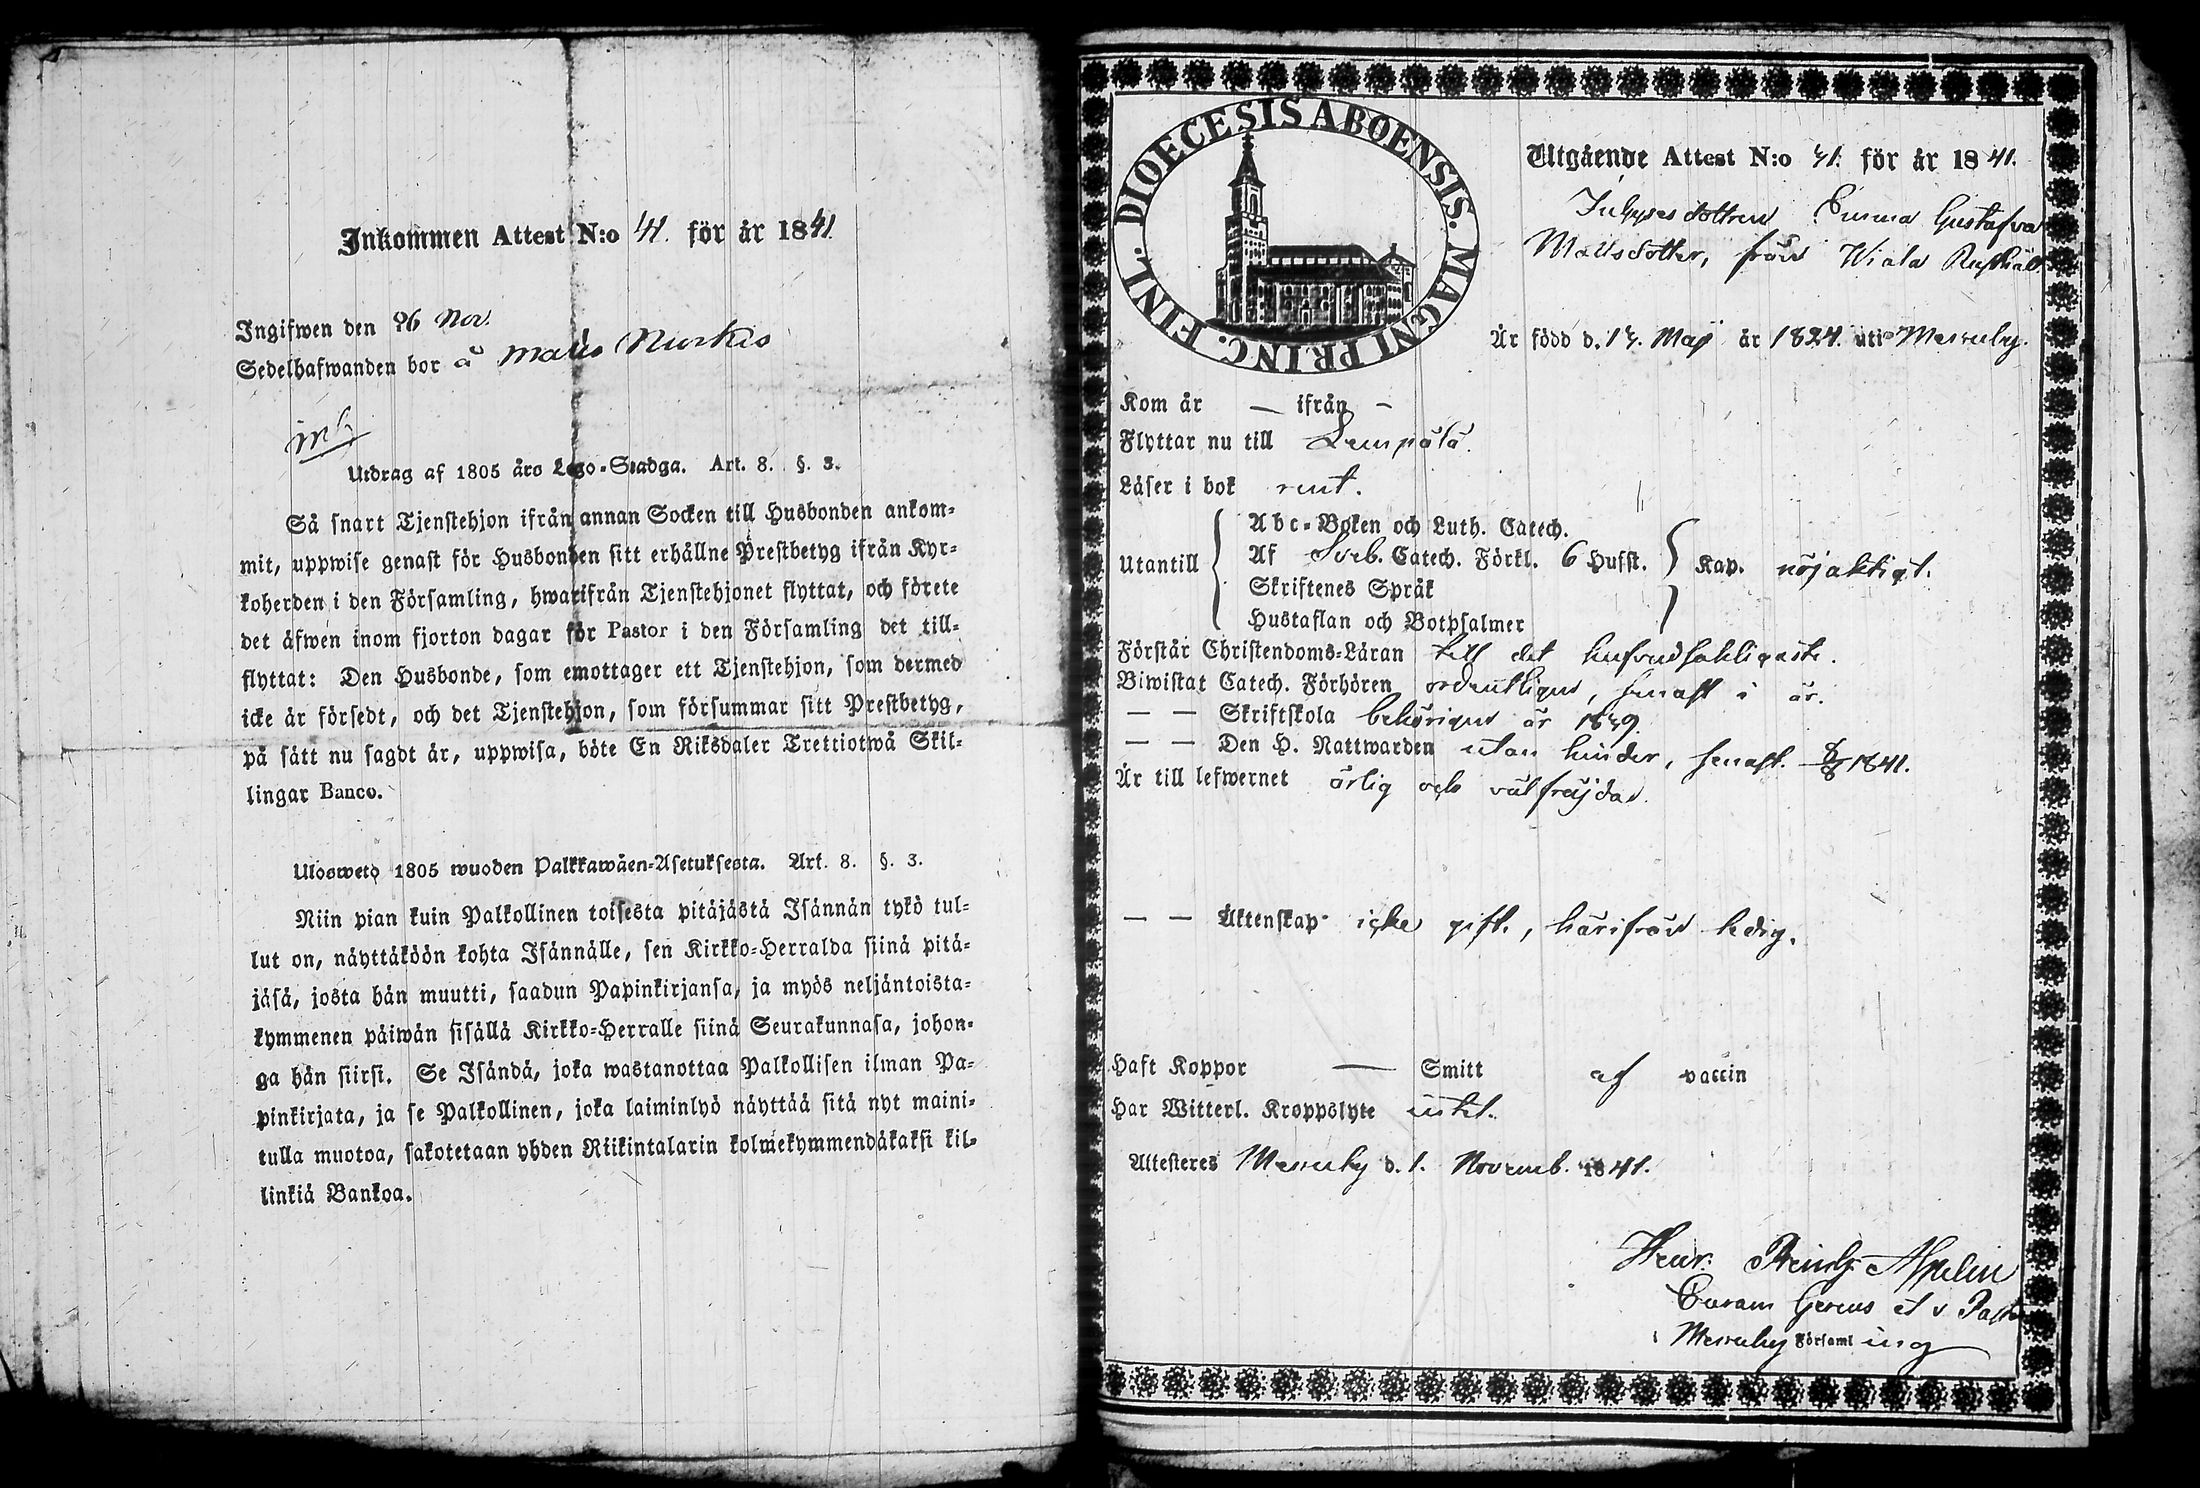 Inkommen Attest N:o 41. för år 1841.
Ingifwen den 26 Nov.
Sedelhafwanden bor å Matts Nurkis
Utdrag af 1805 års Lego-Stadga. Art. 8. §. 3.
Så snart Tjenstehjon ifrån annan Socken till Husbonden ankom-
mit, uppwise genast för Husbonden sitt erhållne Prestbetyg ifrån Kyr-
koherden i den Församling, hwarifrån Tjenstehjonet flyttat, och förete
det äfwen inom fjorton dagar för Pastor i den Församling det till-
flyttat: Den Husbonde, som emottager ett Tjenstehjon, som dermed
icke är försedt, och det Tjenstehjon, som försummar sitt Prestbetyg,
på sätt nu sagdt är, uppwisa, böte En Riksdaler Trettiotwå Skil-
lingar Banco.
Uloswetd 1805 wuoden Palkkawäen-Asetuksesta. Art. 8. §. 3.
Niin pian kuin Palkollinen toisesta pitäjästä Isännän tykö tul-
lut on, näyttäköön kohta Isännälle, sen Kirkko-Herralda siinä pitä-
jäsä, josta hän muutti, saadun Papinkirjansa, ja myös neljäntoista-
kymmenen päiwän sisällä Kirkko-Herralle siinä Seurakunnasa, johon-
ga hän siirsi. Se Isändä, joka wastanottaa Palkollisen ilman Pa-
pinkirjata, ja se Palkollinen, joka laiminlyö näyttää sitä nyt maini-
tulla muotoa, sakotetaan yhden Riikintalarin kolmekymmendäkaksi kil-
linkiä Bankoa.
DIOECESIS ABOENSIS. MAGNI PRINC. FINL.
Utgående Attest N:o 41. för år 1841.
Inhyses dottren Emma Gustafva
Mattsdotter, från Wiala
Är född d. 17. Maj år 1824. uti Messuby.
Kom år — ifrån —
Flyttar nu till Lempälä.
Läser i bok rent.
Abc-Boken och Luth. Catech.
Utantill Af Sveb. Catech. Förkl. 6 Hufst. Kap. nöjaktigt.
Skriftenes Språk
Hustaflan och Botpsalmer
Förstår Christendoms-Läran till det hufvudsakligaste.
Biwistat Catech. Förhören ordentligen, senast i år.
— — Skriftskola behörigen år 1839.
— — Den H. Nattwarden utan hinder, senast 1841.
Är till lefwernet ärlig och välfräjdad.
— — Äktenskap icke gift, härifrån ledig.
Haft Koppor — Smitt af vaccin
Har Witterl. Kroppslyte intet.
Attesteres Messuby d. 1. Novemb. 1841.
Henr: Reinh: Aspelin
Curam Gerens et v Past
i Messuby Församling